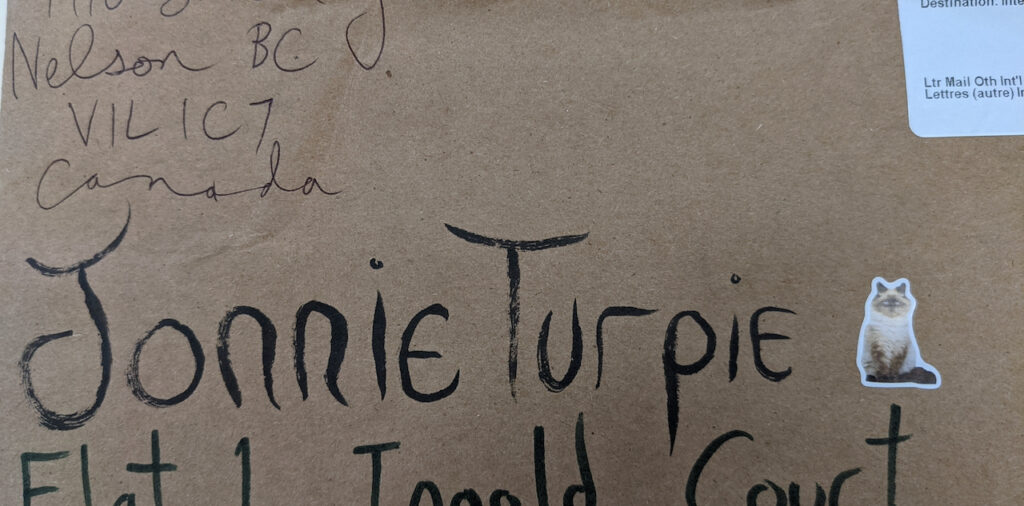 Nelson BC
V1L 1C7
Canada
Destination: Inte
Ltr Mail Oth Int'l
Lettres (autre) In
Jonnie Turpie
Flat 1 Ingold Court